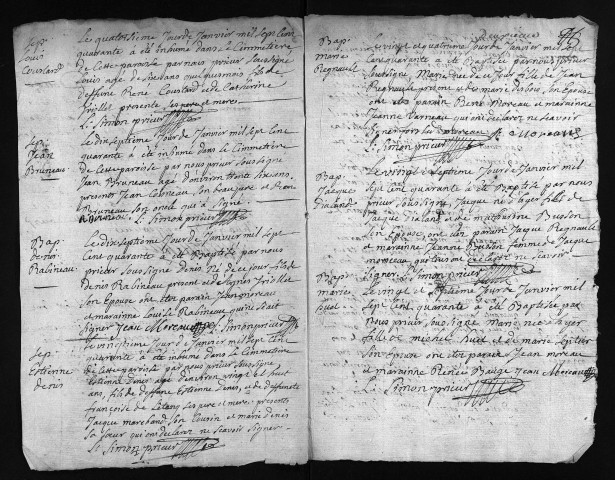 Sep.
Louis
Coustard
Le quatrisième Jour de Janvier mil sept Cent
quarante a été inhumé dans le Cimmetière
de Cette paroisse par nous prieur Soussigné
Louis agé de six ans quelques mois fils de
deffunt René Coustard et de Catherine
presents ses pere et mere
L. Simon prieur
Sep.
Jean
Bruneau
Le dixseptième Jour de Janvier mil sept Cent
quarante a été inhumé dans le Cimmetière
de Cette paroisse par nous prieur Soussigné
Jean Bruneau agé d'environ trente six ans
presents Jean son beaupere et Jean
Bruneau son oncle qui a Signé
L. Simon prieur
Bap.
denis
Rabineau
Le dixseptième Jour de Janvier mil sept
Cent quarante a été Baptisé par nous
prieur Soussigné denis né de ce jour fils de
denis Rabineau present et de
Son Epouse ont été parain Jean moreau
et maraine Louise Rabineau qui
Signer Jean Moreau L. Simon prieur
Sep.
Estienne
denis
Le vingtième Jour de Janvier mil sept Cent
quarante a été inhumé dans le Cimmetière
de Cette paroisse par nous prieur Soussigné
Estienne denis agé d'environ vingt et huit
ans, fils de deffunt Estienne denis, et de deffunte
françoise de ses pere et mere presents
Jaque marchand son Cousin et marie denis
Sa Soeur qui ont declaré ne scavoir Signer
L. Simon prieur
Bap.
marie
Regnault
Le vingt et quatrieme Jour de Janvier mil sept
Cent quarante a été Baptisée par nous prieur
Soussigné Marie née de ce jour fille de Jean
Regnault present et de marie dubois Son Epouse
ont été parain René Moreau et maraine
Jeanne qui ont declaré ne scavoir
Signer fors Moreau
R. Moreau
L. Simon prieur
Bap.
Jaque
Le vingt et Septieme Jour de Janvier mil
Sept Cent quarante a été Baptisé par nous
prieur Soussigné, Jaque né d'hyer fils de
Jaque et de mathurine Buson
Son Epouse ont été parain Jaque Regnault
et maraine Jeanne femme de Jaque
morceau qui ont declaré ne scavoir
Signer. L. Simon prieur
Bap.
marie
huet
Le vingt et septieme Jour de Janvier mil
Sept Cent quarante a été Baptisée par
nous prieur Soussigné Marie née d'hyer
fille de michel huet et de marie
Son Epouse ont été parain Jean moreau
et maraine Renée Baugé Jean Moreau
L. Simon prieur